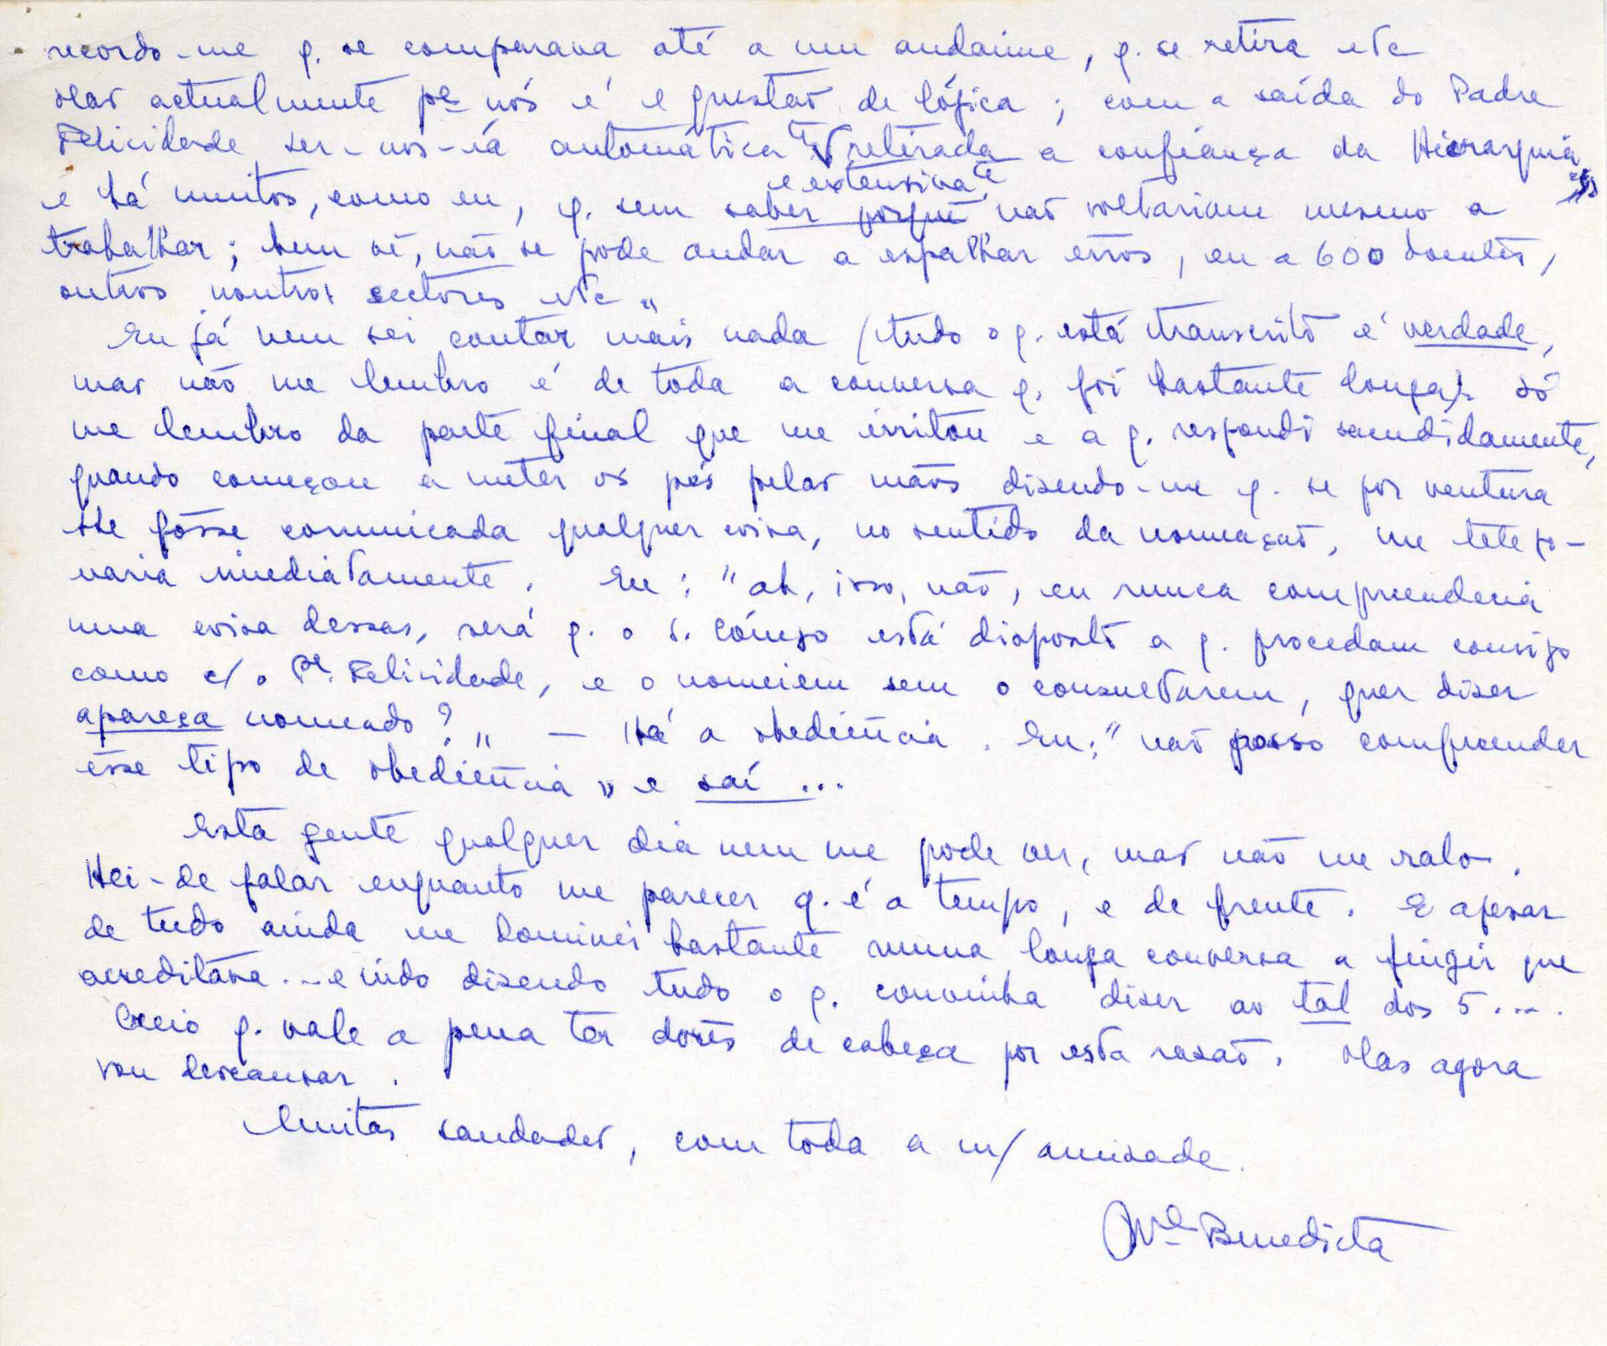 recordo-me q. se comparava até a um andaime, q. se retira etc
Mas actualmente pª nós é 1 questão de lógica; com a saída do Padre
Felicidade ser-nos-iá automáticaᵗᵉ retirada a confiança da Hierarquia
e extensivaᵗᵉ
e há muitos, como eu, q. sem saber porquê não voltariam mesmo a
trabalhar; bem vê, não se pode andar a espalhar erros, eu a 600 doentes,
outros noutros sectores etc"
Eu já nem sei contar mais nada (tudo o q. está transcrito é verdade,
mas não me lembro é de toda a conversa q. foi bastante longa). Só
me lembro da parte final que me irritou e a q. respondi sacudidamente,
quando começou a meter os pés pelas mãos dizendo-me q. se por ventura
lhe fôsse comunicada qualquer coisa, no sentido da nomeação, me telefo-
naria imediatamente. Eu: "ah, isso, não, eu nunca compreenderia
uma coisa dessas, será q. o S. Cónego está disposto a q. procedam consigo
como c/ o Pe. Felicidade, e o nomeiem sem o consultarem, quer dizer
apareça nomeado?" — Há a obediência. Eu: "não posso compreender
êsse tipo de obediência" e saí ...
Esta gente qualquer dia nem me pode ver, mas não me ralo.
Hei-de falar enquanto me parecer q. é a tempo, e de frente. E apesar
de tudo ainda me dominei bastante numa longa conversa a fingir que
acreditava... e indo dizendo tudo o q. convinha dizer ao tal dos 5 ....
Creio q. vale a pena ter dores de cabeça por esta razão. Mas agora
vou descansar.
Muitas saudades, com toda a m/ amizade.
Benedicta